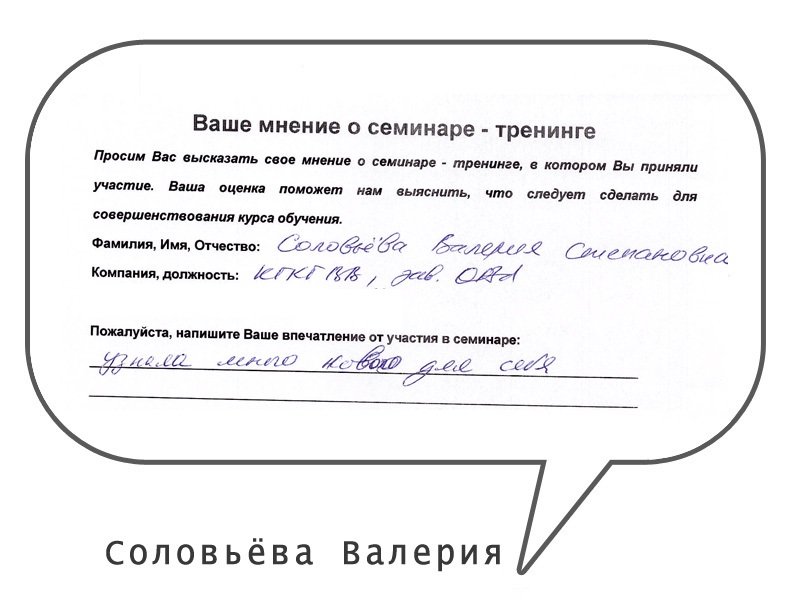 Ваше мнение о семинаре - тренинге
Просим Вас высказать свое мнение о семинаре - тренинге, в котором Вы приняли
участие. Ваша оценка поможет нам выяснить, что следует сделать для
совершенствования курса обучения.
Фамилия, Имя, Отчество: Соловьёва Валерия Степановна
Компания, должность: зав.
Пожалуйста, напишите Ваше впечатление от участия в семинаре:
узнала много нового для себя
Соловьёва Валерия